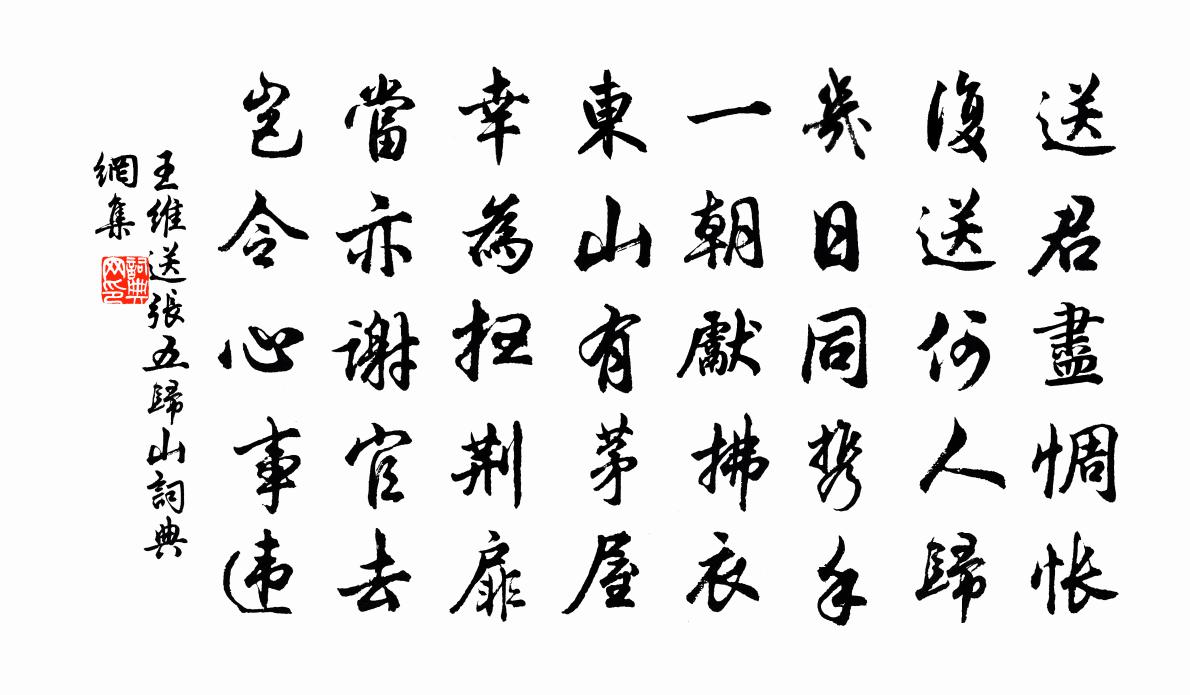 送君盡惆悵
復送何人歸
幾日同携手
一朝獻拂衣
東山有茅屋
幸為掃荊扉
當亦謝官去
豈令心事違
王維送張五歸山詞典
網集
詞典
网印